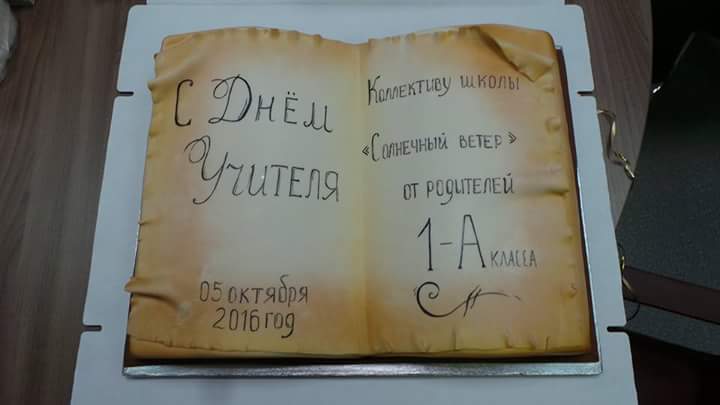 С Днём
Учителя
05 октября
2016 год
Коллективу школы
«Солнечный ветер»
от родителей
1-А класса